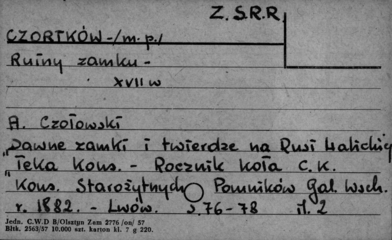 Z.S.R.R.
CZORTKÓW -/m.p./
Ruiny zamku -
XVII w
A. Czołowski
"Dawne zamki i twierdze na Rusi Halickiej"
Teka Kons. - Rocznik Koła C.K.
Kons. Starożytnych Pomników Gal. Wsch.
r. 1882. - Lwów. s. 76-78 il. 2
Jedn. C.W.D B/Olsztyn Zam 2776 /on/ 57
Bltk. 2563/57 10,000 szt. karton kl. 7 g 220.